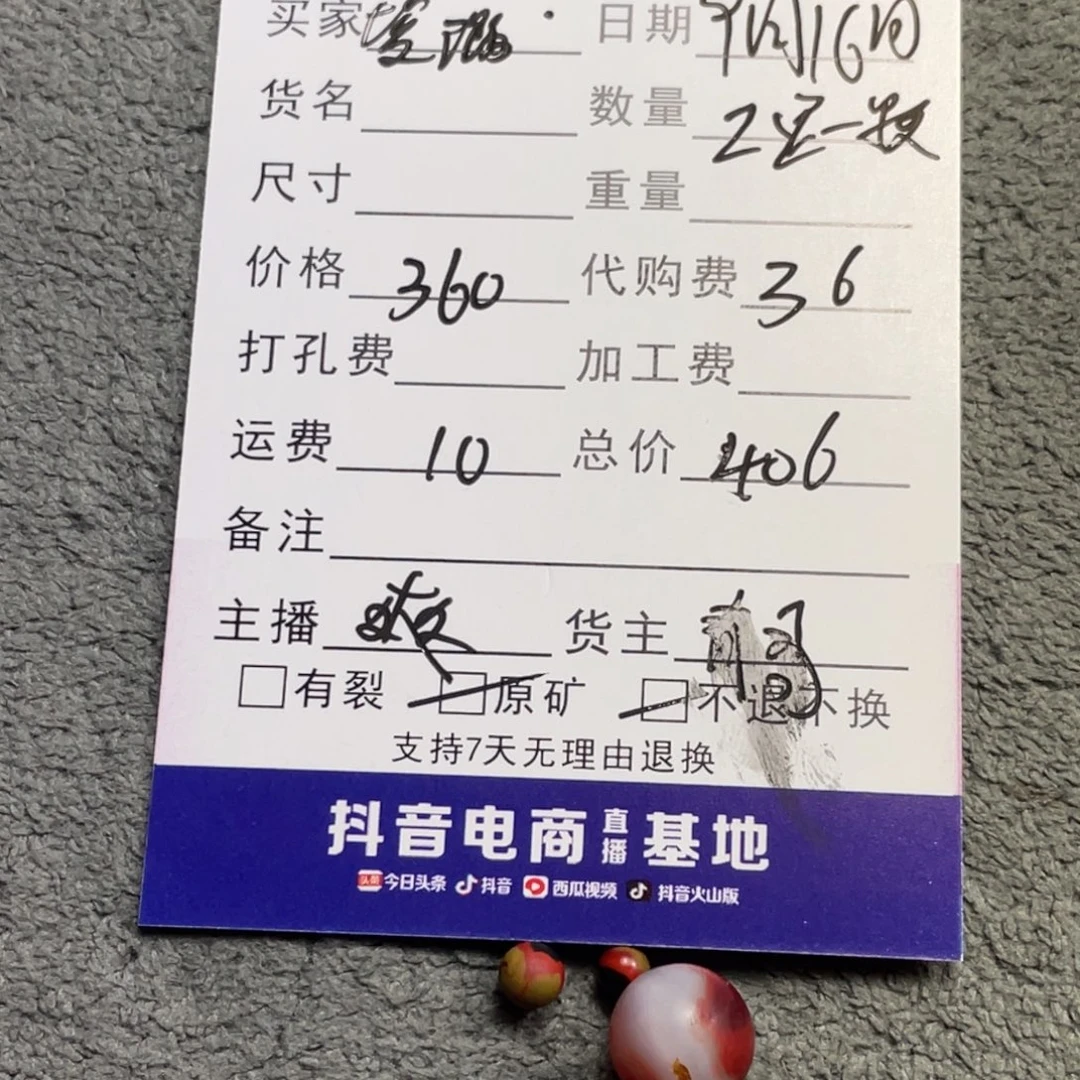 买家 日期 9月16日
货名 数量 2
尺寸 重量
价格 360 代购费 36
打孔费 加工费
运费 10 总价 406
备注
主播 货主
有裂 原矿 不退不换
支持7天无理由退换
抖音电商直播基地
头条 今日头条 抖音 西瓜视频 抖音火山版